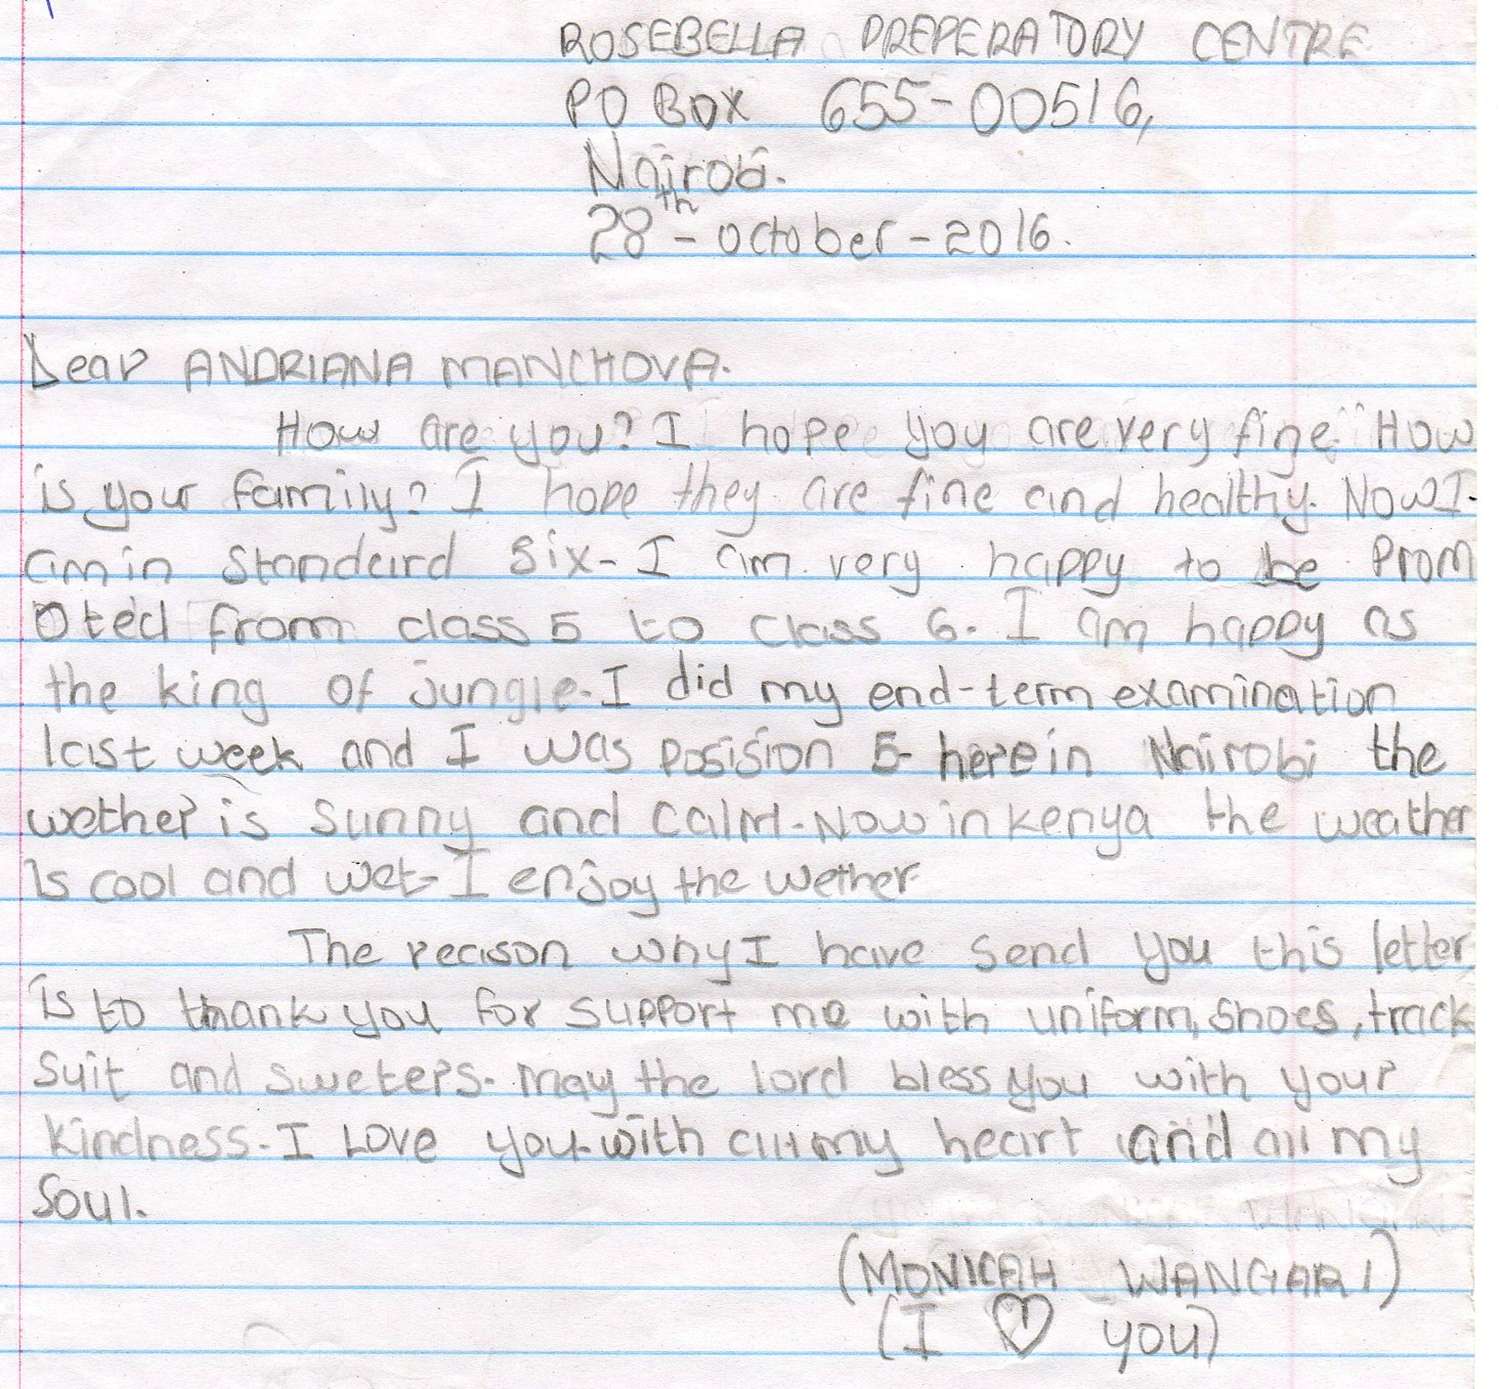 ROSEBELLA PREPERATORY CENTRE
PO BOX 655-00516,
Nairobi.
28th-october-2016.
Dear ANDRIANA MANCHOVA.
How are you? I hope you are very fine. How
is your family? I hope they are fine and healthy. Now I
am in standard six. I am very happy to be prom
oted from class 5 to class 6. I am happy as
the king of jungle. I did my end-term examination
last week and I was posision 5. here in Nairobi the
wether is sunny and calm. Now in kenya the weather
is cool and wet. I enjoy the wether.
The reason why I have send you this letter
is to thank you for support me with uniform, shoes, track
suit and sweters. may the lord bless you with your
kindness. I love you with all my heart and all my
soul.
(MONICAH WANGARI)
(I ♡ you)